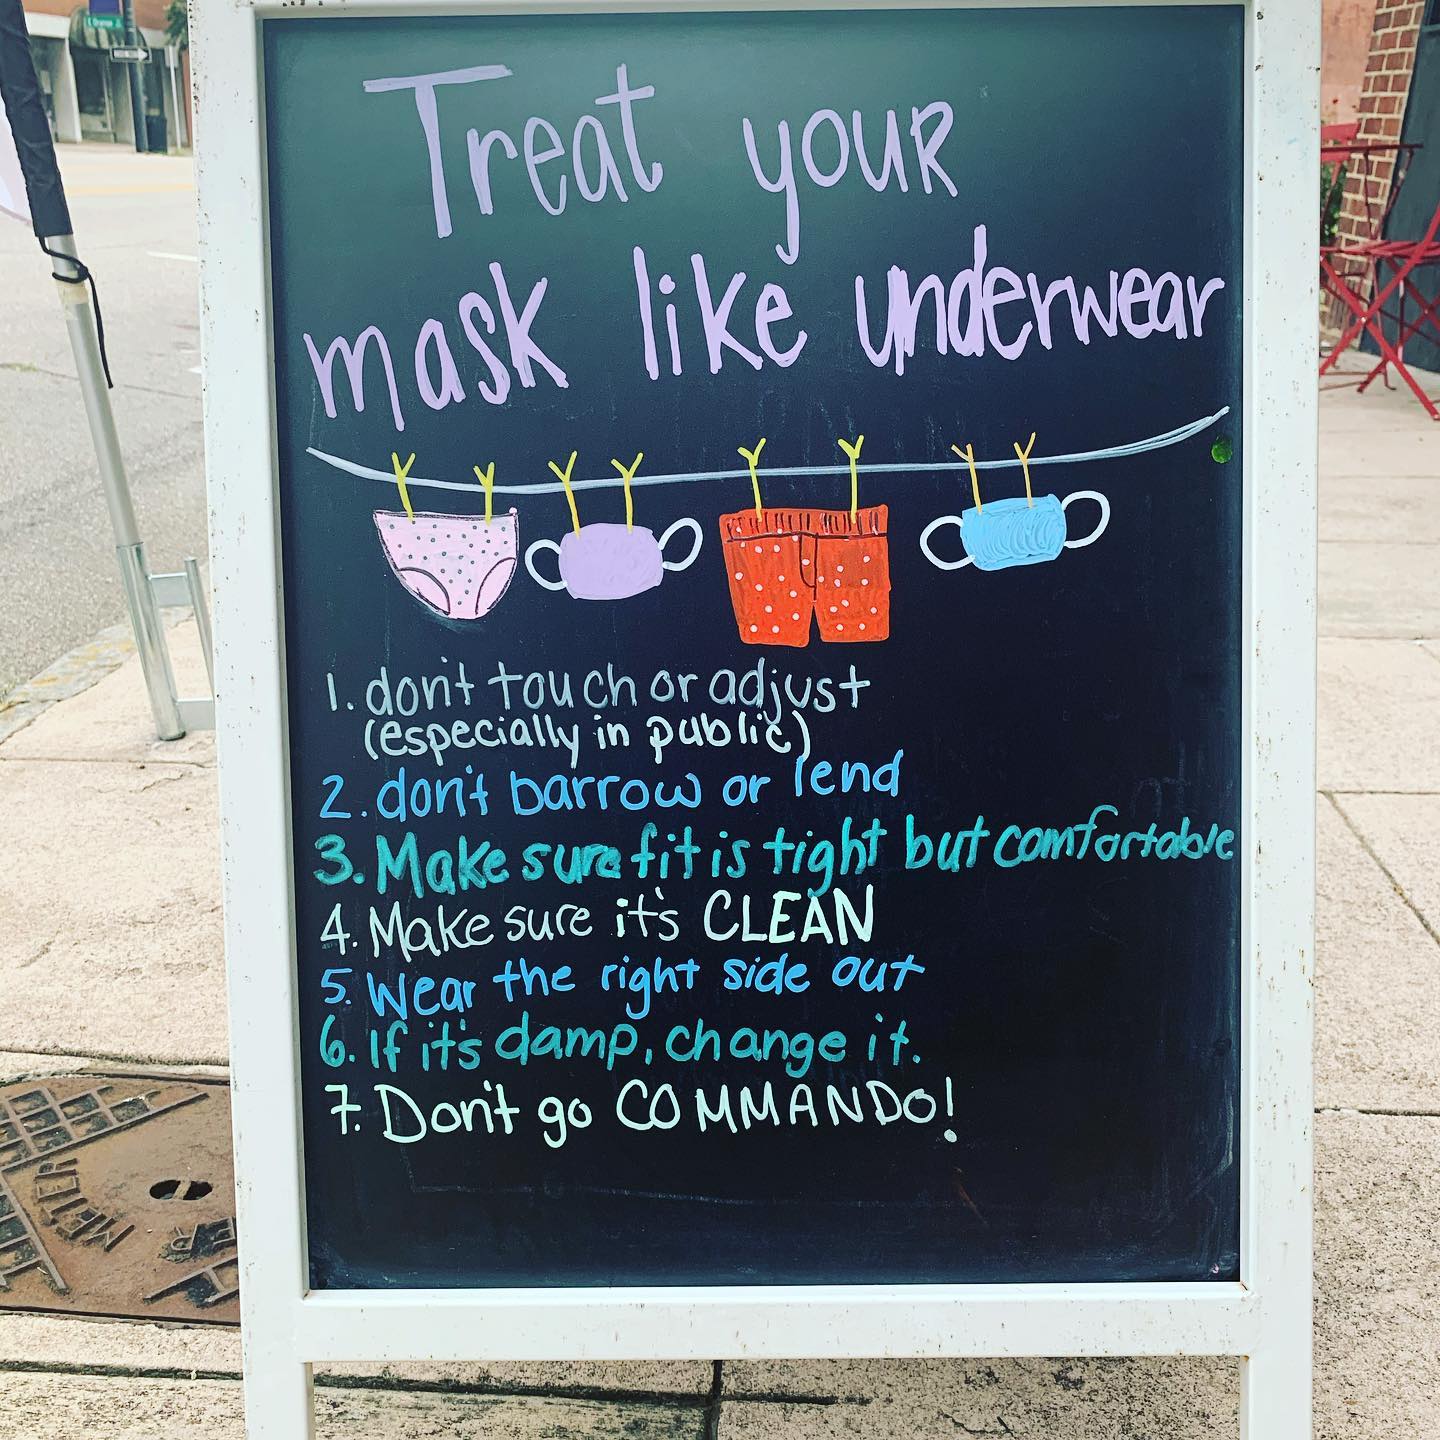 Treat your
mask like underwear
1. don't touch or adjust
(especially in public)
2. don't barrow or lend
3. Make sure fit is tight but comfortable
4. Make sure it's CLEAN
5. Wear the right side out
6. If it's damp, change it.
7. Don't go COMMANDO!
METER